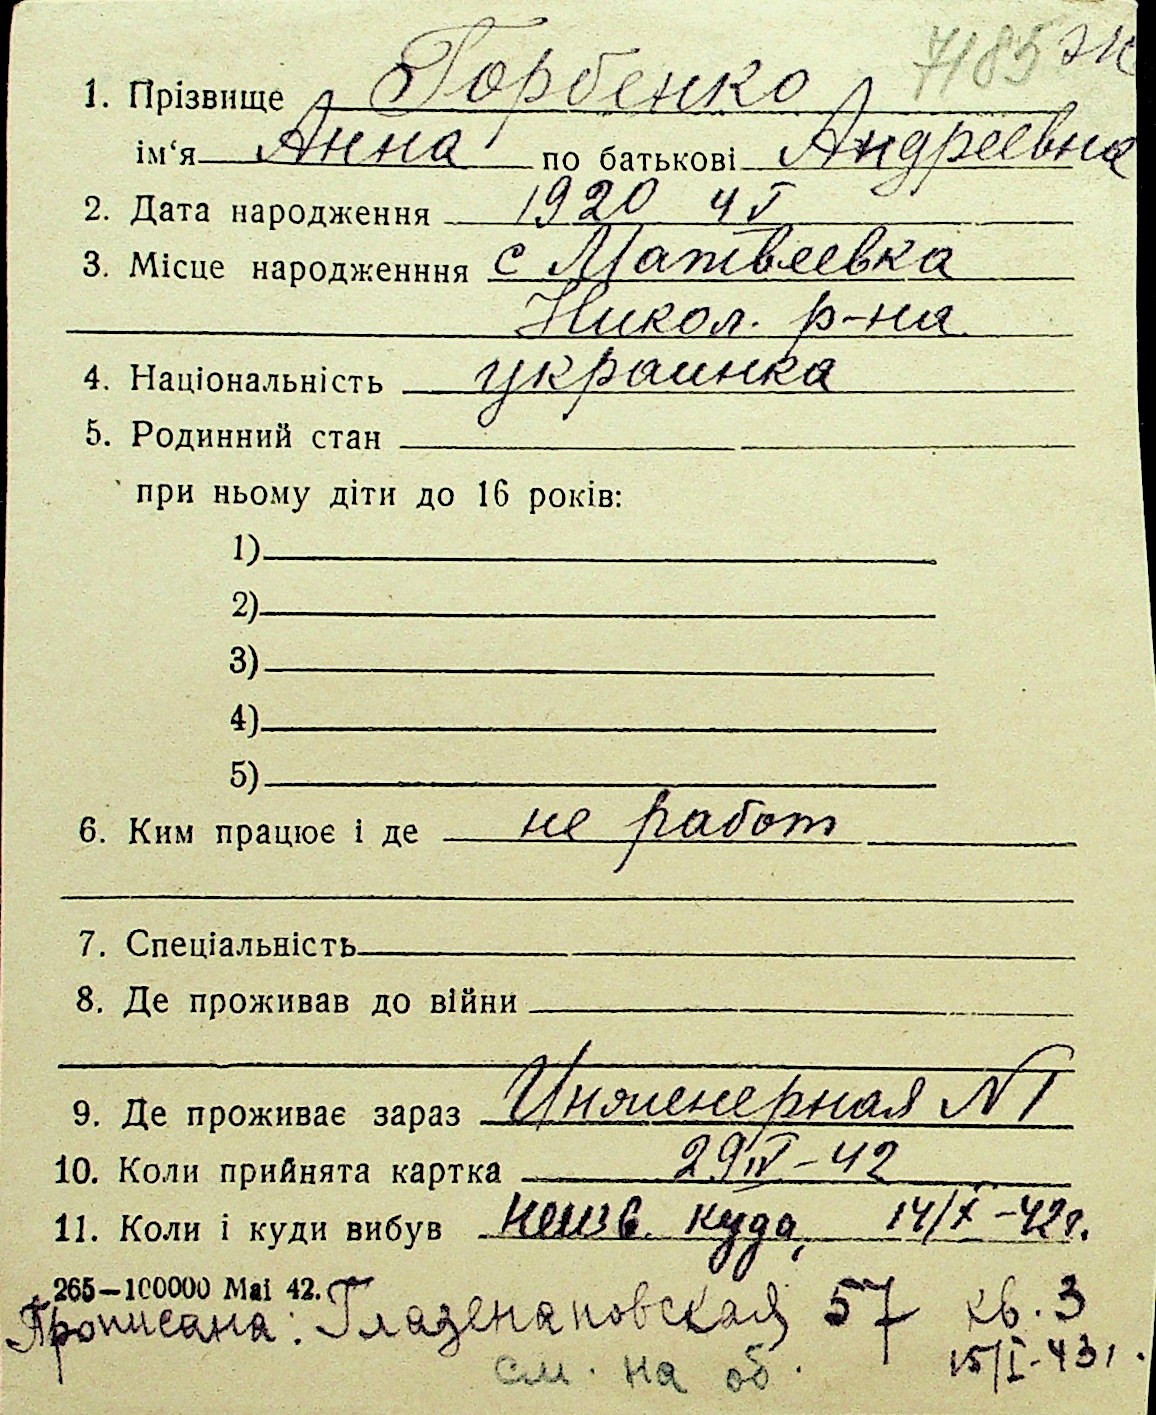 7185 эк
1. Прізвище Горбенко
ім‘я Анна по батькові Андреевна
2. Дата народження 1920 4 I
3. Місце народженння с Матвеевка
Никол. р-на
4. Національність украинка
5. Родинний стан
при ньому діти до 16 років:
1)
2)
3)
4)
5)
6. Ким працює і де не работ
7. Спеціальність
8. Де проживав до війни
9. Де проживає зараз Инженерная N 1
10. Коли прийнята картка 29 IV - 42
11. Коли і куди вибув неизв. куда, 14/X - 42 г.
265—100000 Mai 42.
Прописана: Глазенаповская 57 кв. 3
см. на об. 15/I - 43 г.